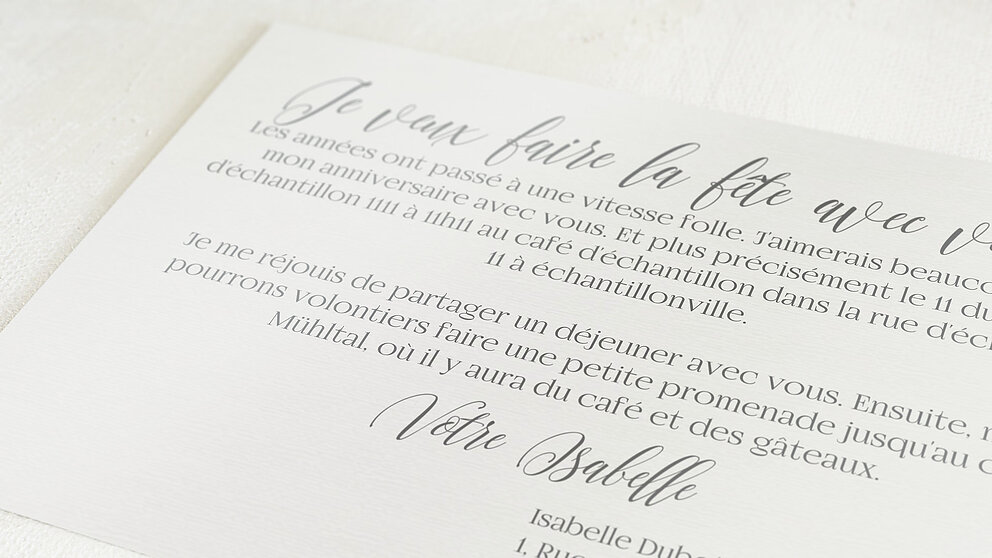 Je veux faire la fête avec v
Les années ont passé à une vitesse folle. J'aimerais beauco
mon anniversaire avec vous. Et plus précisément le 11 du
d'échantillon 1111 à 11h11 au café d'échantillon dans la rue d'éc
11 à échantillonville.
Je me réjouis de partager un déjeuner avec vous. Ensuite, n
pourrons volontiers faire une petite promenade jusqu'au c
Mühltal, où il y aura du café et des gâteaux.
Votre Isabelle
Isabelle Dubo
1. Rue